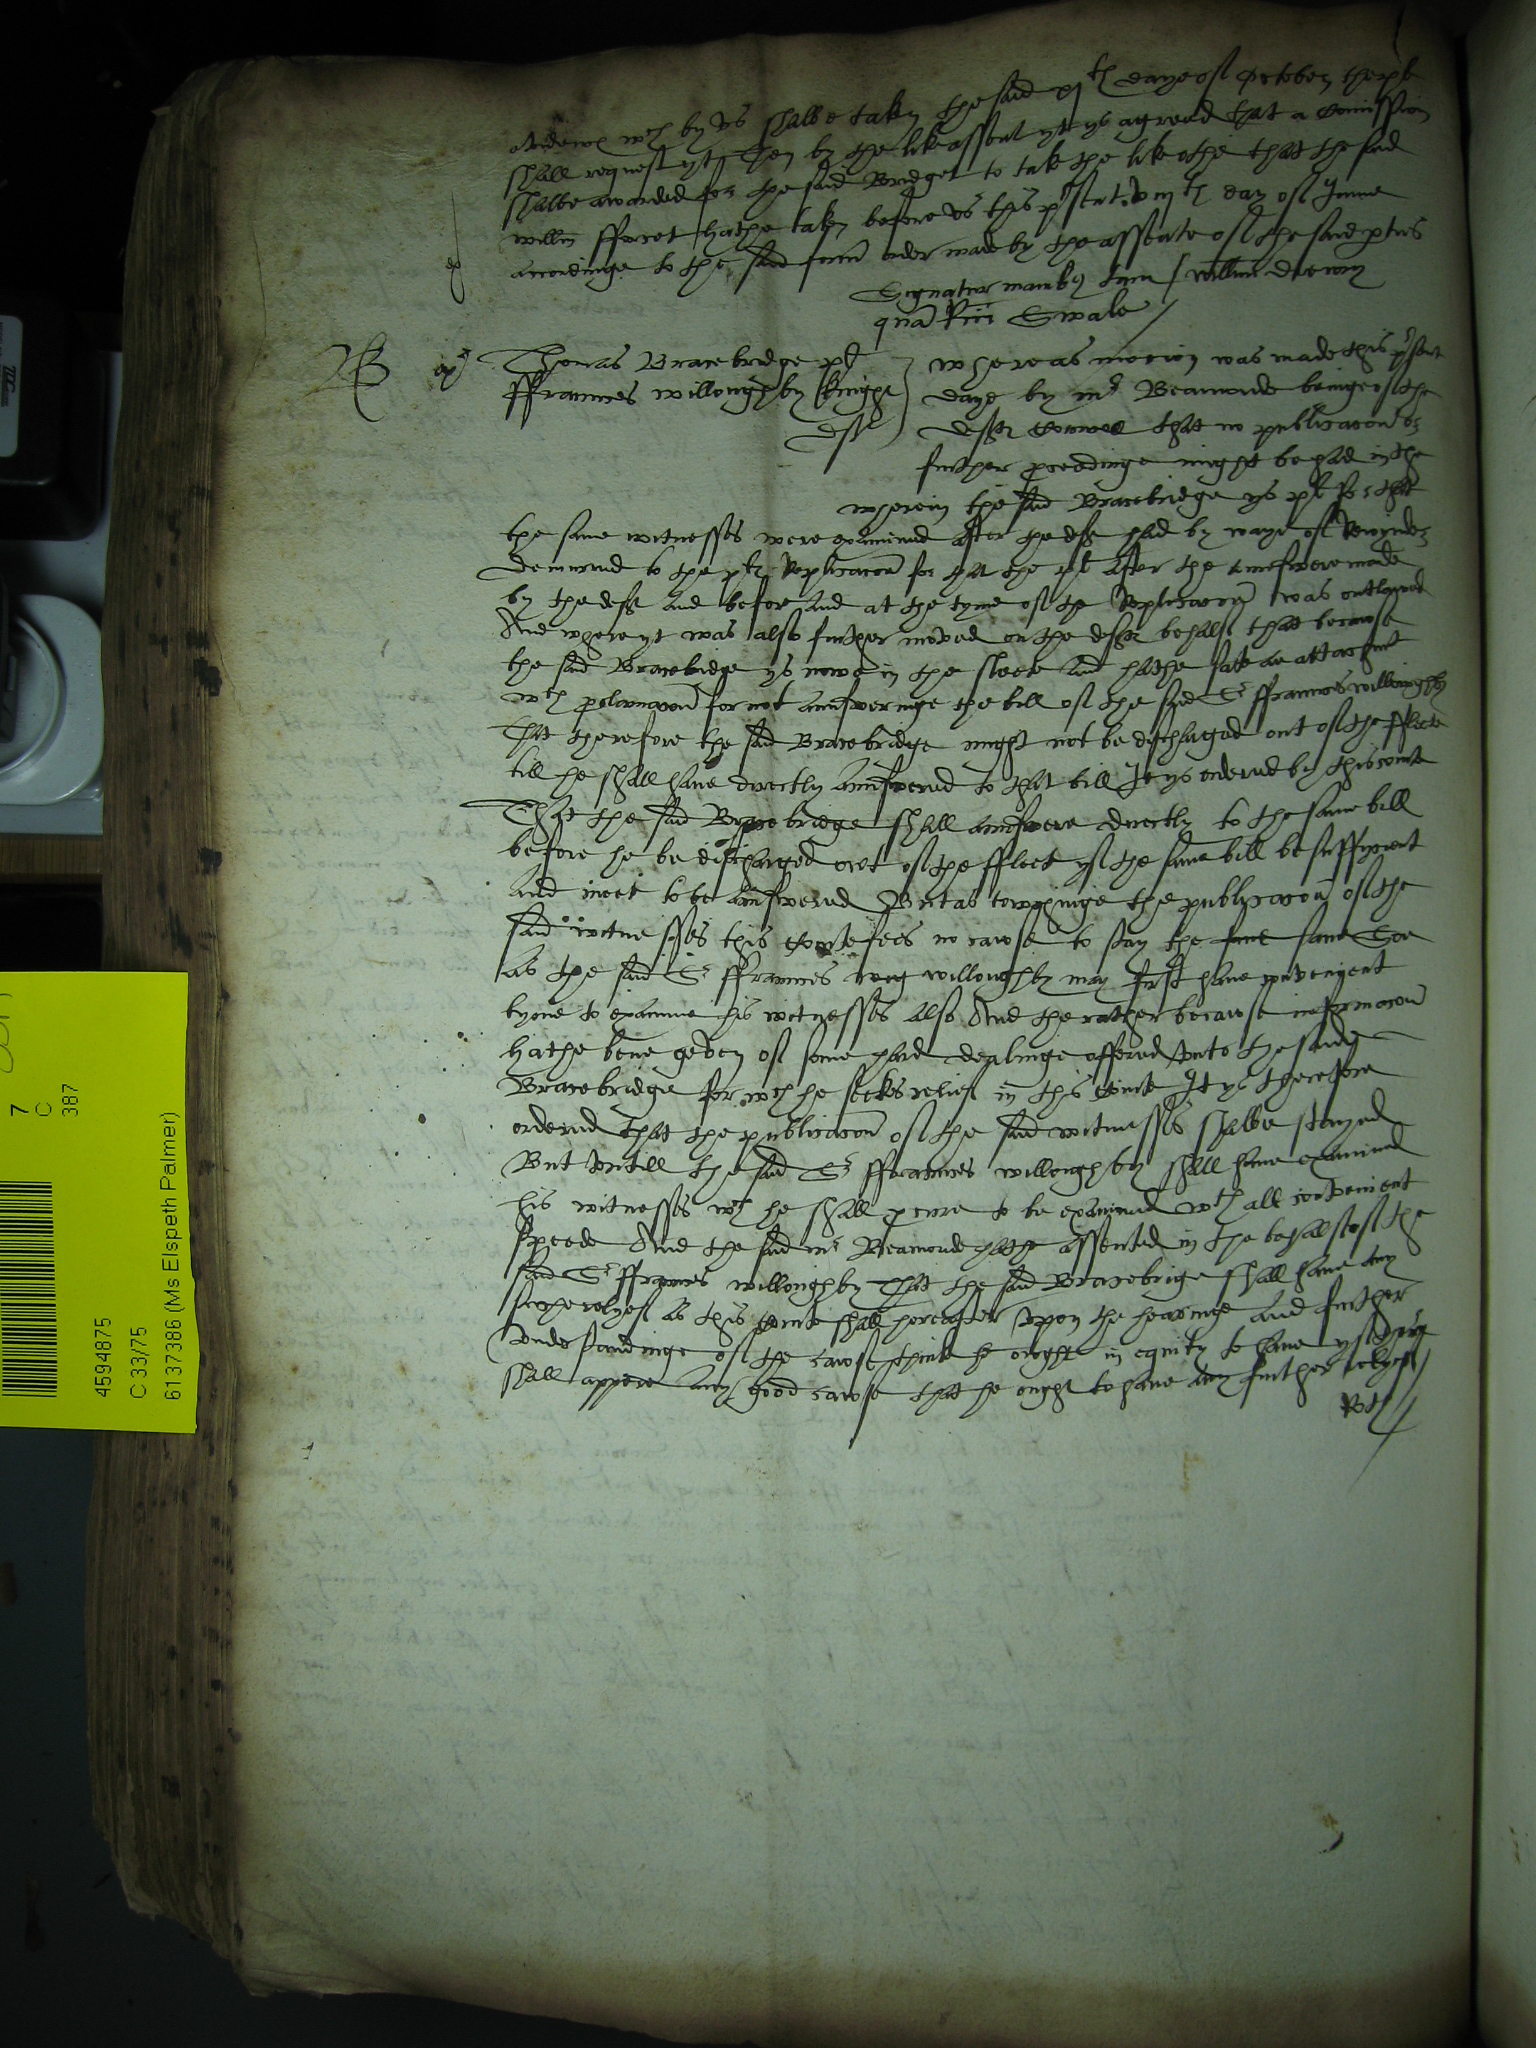 wch by us shalbe taken the said xjth daye of October the pl
shall request yt Then by the like assent yt ys agreed that a Comission
shalbe awarded for the said Bridget to take the like othe that the said
Willm ffawcet hathe taken before us this pñt viijth day of June
accordinge to the said former order made by the assente of the said pties
Signatur manibus tam Willim Drewry
quam Rici Swale
B
ex
Thomas Bracebridge plt
ffraunces willoughby knight
deft
whereas mocion was made this pñt
daye by mr Beamonde beinge of the
defts Counsell that no publicacon or
further proceedinge might be had in the
wherein the said Bracebridge ys plt for that
the same witnesses were examined after the deft had by waye of Rejoynder
demurred to the plts Replicacon for that the plt after the answere made
by the deft and before and at the tyme of the Replicacon was outlawed
And where yt was also further moved on the defts behalf that because
the said Bracebridge ys nowe in the fleete and hathe satt an attachmt
wth proclamacon for not answeringe the bill of the said Sr ffraunces willoughby
That therefore the said Bracebridge might not be discharged out of the fflete
till he shall have directly answered to that bill It ys ordered by this courte
That the said Bracebridge shall answere directly to the same bill
before he be discharged owt of the ffleet yf the same bill be suffycient
and meet to be answered But as towchinge the publicacon of the
said witnesses this Courte sees no cawse to stay the same Soe
as the said Sr ffraunces willoughby may first have convenyent
tyme to examine his witnesses also And the rather because informacon
hathe bene geven of some hard dealinge offered unto the said
Bracebridge for wch he seekes relief in this Courte It ys therefore
ordered that the publicacon of the said witnesses shalbe stayed
But untill the said Sr ffraunces willoughby shall have examined
his witnesses wch he shall procure to be examined wth all convenient
speede And the said mr Beamonde hathe assented in the behalf of the
said Sr ffraunces willoughby That the said Bracebrige shall have any
suche relyef as this Courte shall hereafter upon the hearinge and further
understandinge of the cawse thinke he ought in equity to have yf there
shall appere any good cawse that he ought to have any further relyef
7
C
387
4594875
C 33/75
6137386 (Ms Elspeth Palmer)